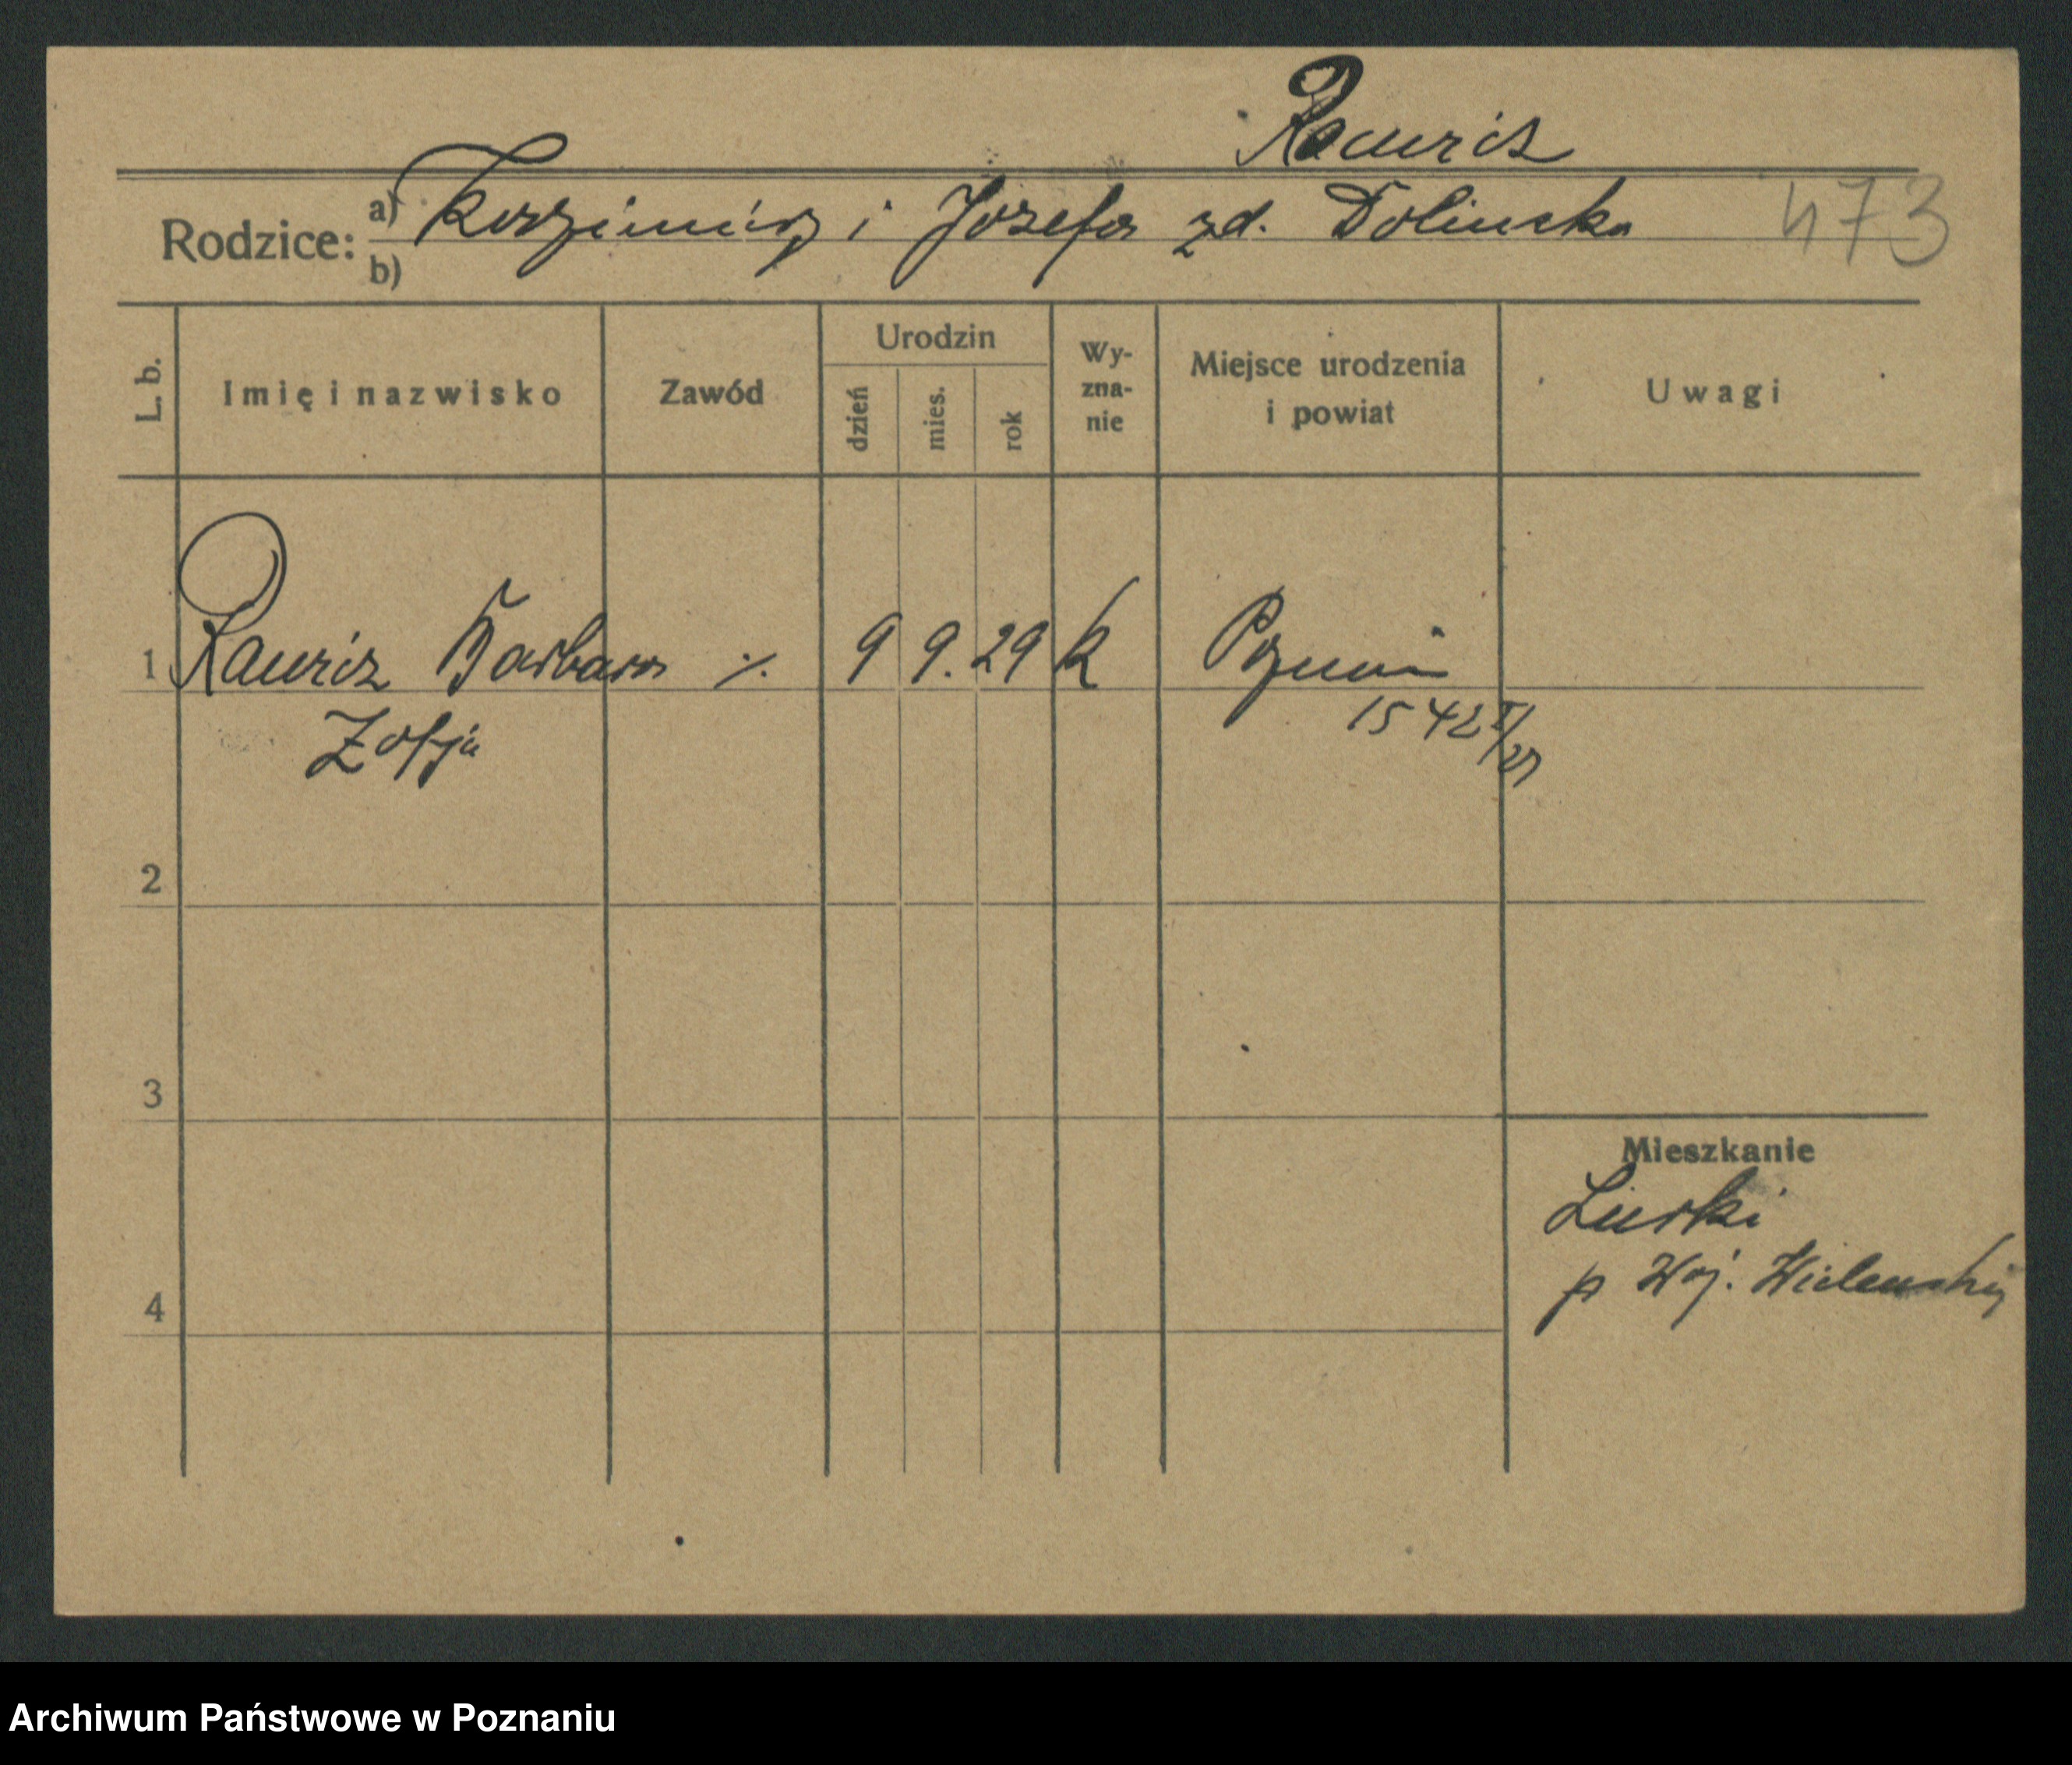 Rauris
Rodzice: a) Kazimierz i Józefa zd. Dolinska 473
b)
L. b. Imię i nazwisko Zawód Urodzin dzień mies. rok Wy-zna-nie Miejsce urodzenia i powiat Uwagi
1 Rauris Barbara ·/. 9 9. 29 K Poznań
Zofja 1542 I/29
2
3
Mieszkanie
p Woj. Wilenskiej
4
Archiwum Państwowe w Poznaniu